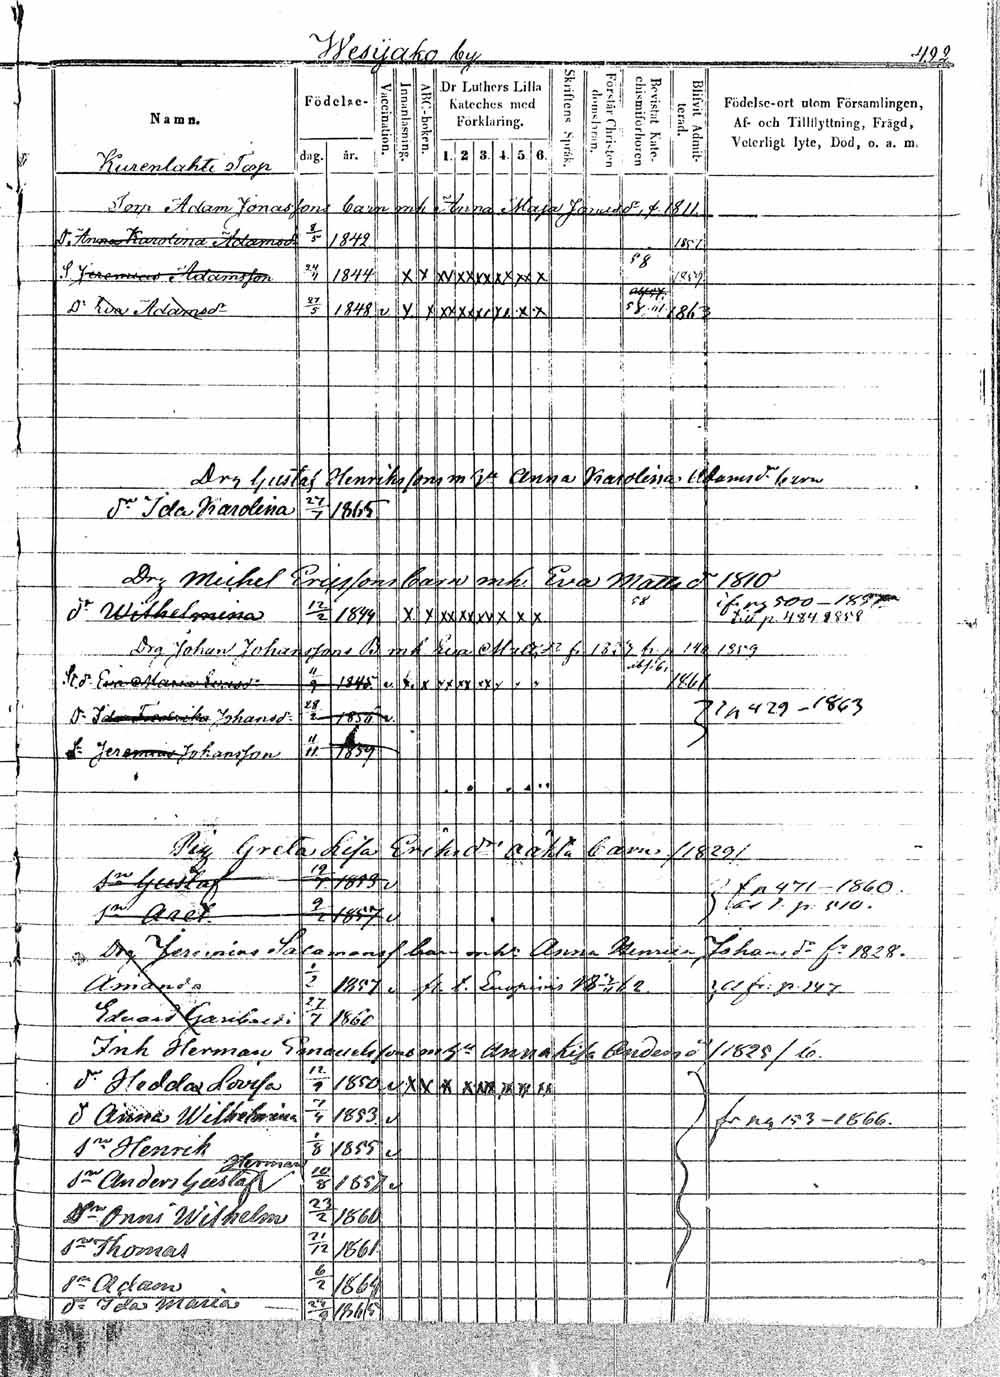 Wesijako by 492
Namn. Födelse- dag. år. Vaccination. Innanläsning. ABC-boken. Dr Luthers Lilla Kateches med Förklaring. 1. 2 3. 4. 5 6. Skriftens Språk. Förstår Christendomsläran. Bevistat Katechismiförhören Blifvit Admitterad. Födelse-ort utom Församlingen, Af- och Tillflyttning, Frägd, Veterligt lyte, Död, o. a. m.
Kurenlahti Torp
Torp Adam Jonassons barn m h. Anna Maja 1811
d. Anna Karolina Adamsdr 8/5 1842 1857
S Jeremias Adamsson 24/4 1844 x x xx xx xx xx xx x 58 1859
Dr Eva Adamsdr 27/5 1848 v x x xx xx xx xx x x 58 1863
Drg Gustaf Henrikssons m hn Anna Karolina Adamsdr barn
dr Ida Karolina 27/7 1865
Drg Michel Erikssons barn m h. Eva Mattsd 1810
dr Wilhelmina 12/2 1844 x x xx xx xx x x x 58 fr. pg 500–1857 till p. 484 1858
Drg Johan Johanssons B m h Eva 1857 fr p 140 1859
Eva Maria 11/9 1845 v x x xx xx xx x 1861
Dr Ida Fredrika Johansdr 28/2 1856 v. p 429–1863
S. Jeremias Johansson 11/11 1859
Pig Greta Lisa Eriksdrs oäkta barn /1829/
sn Gustaf 19/7 1853 v f p 471–1860.
sn Axel 9/2 1857 v p. 510.
Drg Jeremias Salamons barn m hn Anna Henrica Johansdr f. 1828.
Amanda 1/2 1857 v fr. p. 147
Eduard Garibaldi 27/7 1860
Inh Herman Emanuelssons m hn Anna Lisa Andersd /1825/ b.
dr Hedda Lovisa 12/9 1850 v x x x x xx x x x
d Anna Wilhelmina 7/4 1853 v fr pg 153–1866.
sn Henrik 1/8 1855 v
sn Anders Gustaf Herman 10/8 1857 v
sn Onni Wilhelm 23/2 1860
sn Thomas 21/12 1861
sn Adam 6/2 1864
dr Ida Maria 24/9 1865